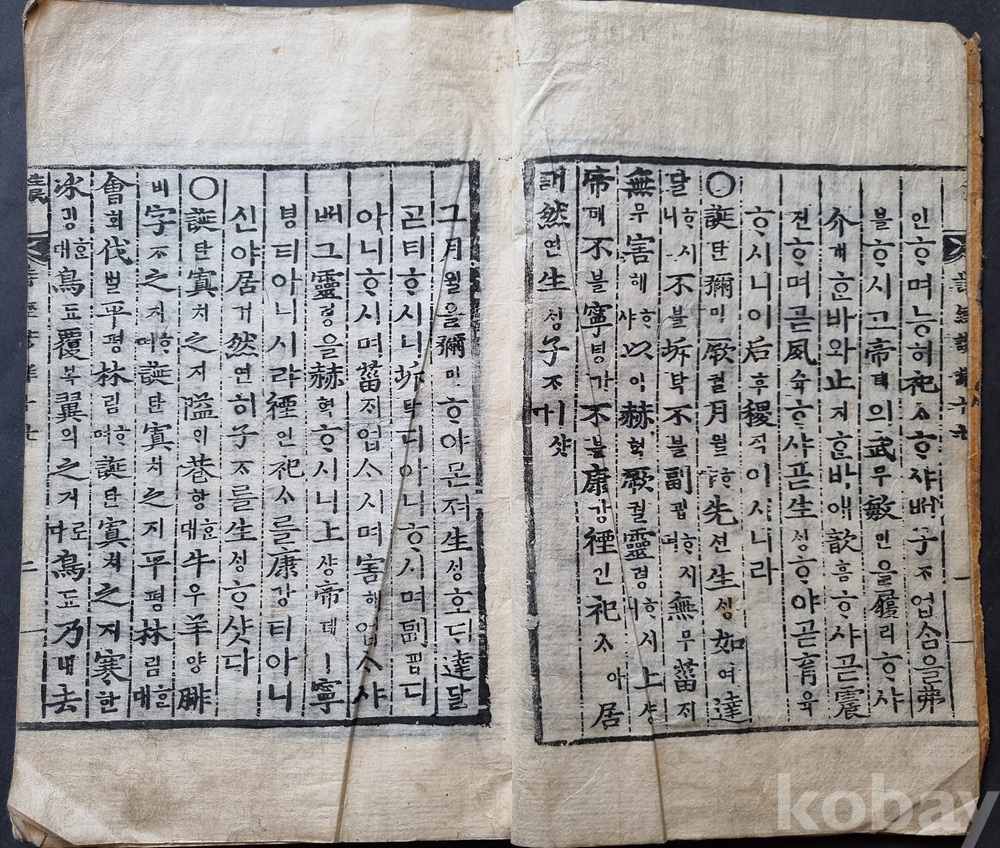 인ᄒᆞ며능히祀ᄉᆞᄒᆞ샤ᄡᅥ子ᄌᆞ업슴을弗
블ᄒᆞ시고帝뎨의武무敏민을履리ᄒᆞ샤
介개ᄒᆞᆫ바와止지ᄒᆞᆫ바애歆흠ᄒᆞ샤곧震
진ᄒᆞ며곧夙슉ᄒᆞ샤곧生성ᄒᆞ야곧育육
ᄒᆞ시니이后후稷직이시니라
○誕탄彌미厥궐月월先션生성如여達
달ᄒᆞ시니不블坼탁不블副핍ᄒᆞ시며無무菑지
無무害해ᄒᆞ샤以이赫혁厥궐靈령ᄒᆞ시니上샹
帝뎨不블寧녕가不블康강禋인祀ᄉᆞ아居
然연生성子ᄌᆞㅣ샷
그月월을彌미ᄒᆞ야몬져生성호ᄃᆡ達달
곧티ᄒᆞ시니坼탁디아니ᄒᆞ시며副핍디
아니ᄒᆞ시며菑지업스시며害해업스샤
ᄡᅥ그靈령을赫혁ᄒᆞ시니上샹帝뎨ㅣ寧
녕티아니시랴禋인祀ᄉᆞ를康강티아니
신야居거然연히子ᄌᆞ를生성ᄒᆞ샷다
○誕탄寘치之지隘의巷항ᄒᆞᆫ대牛우羊양腓
비字ᄌᆞ之지ᄒᆞ며誕탄寘치之지平평林림ᄒᆞᆫ대
會회伐벌平평林림ᄒᆞ며誕탄寘치之지寒한
冰빙ᄒᆞᆫ대鳥됴覆복翼의之지로다鳥됴乃내去
kobay